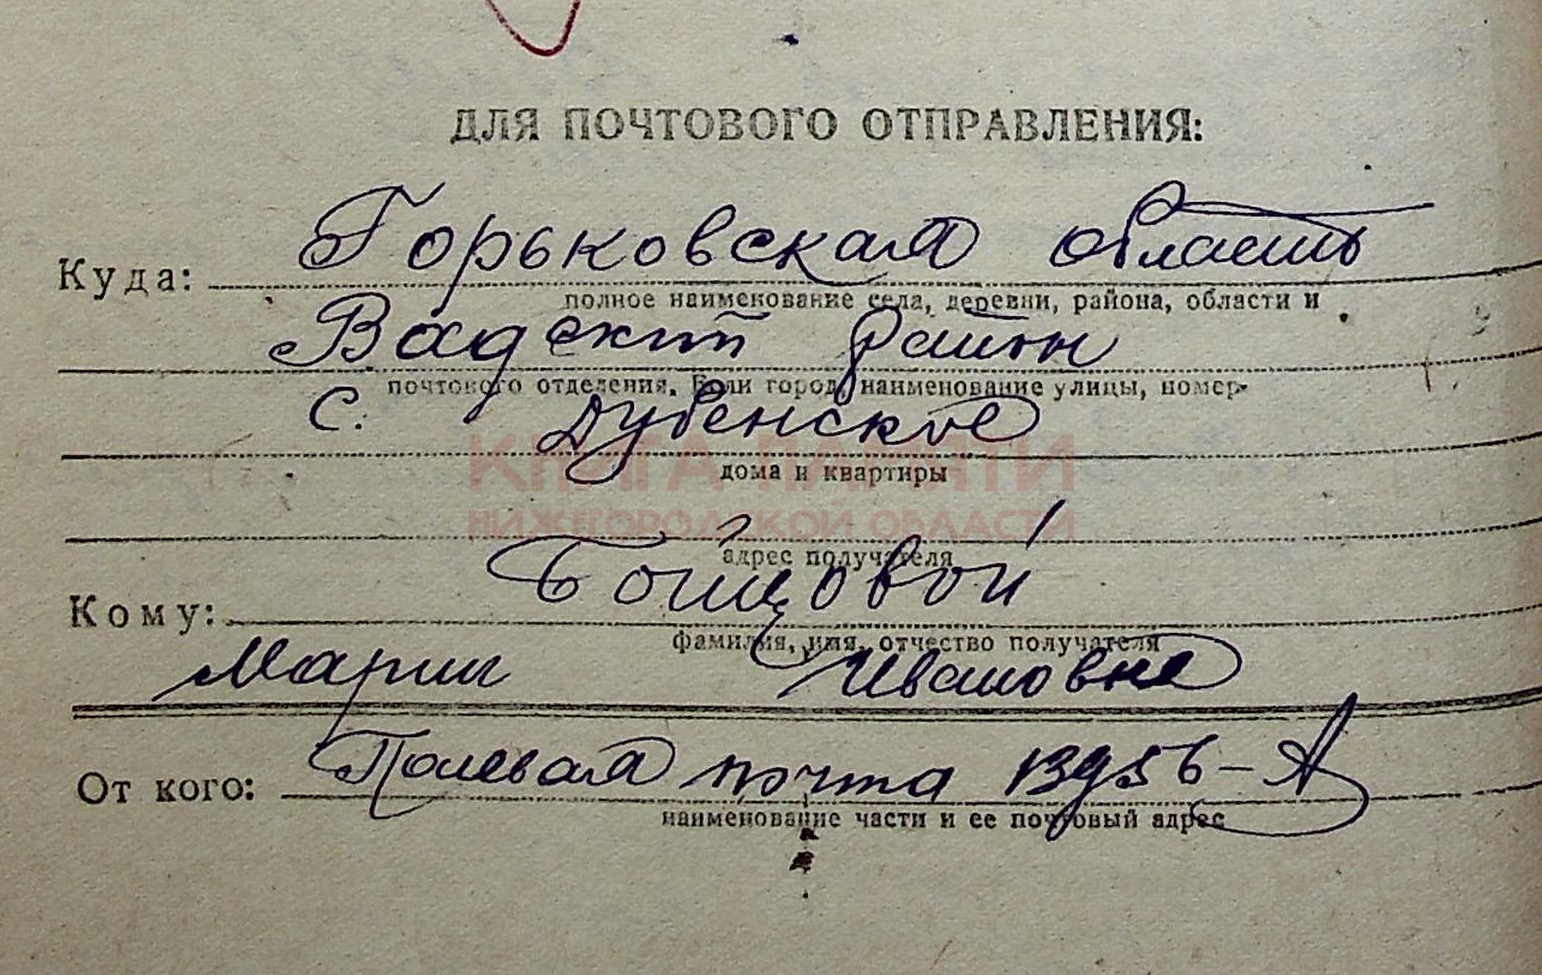 ДЛЯ ПОЧТОВОГО ОТПРАВЛЕНИЯ:
Куда: Горьковская область
полное наименование села, деревни, района, области и
Вадский район
почтового отделения. Если город, наименование улицы, номер
с. Дубенское
КНИГА ПАМЯТИ
дома и квартиры
НИЖЕГОРОДСКОЙ ОБЛАСТИ
адрес получателя
Кому: Бойцовой
фамилия, имя, отчество получателя
Марии Ивановне
От кого: Полевая почта 13956-А
наименование части и ее почтовый адрес